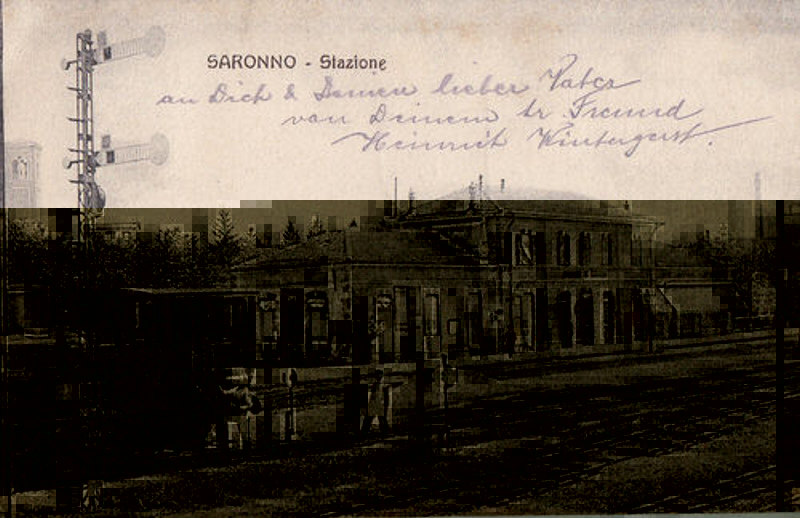 SARONNO - Stazione
an Dich & Deinen lieber Vater
von Deinem tr Freund
Heinrich Wintergerst.